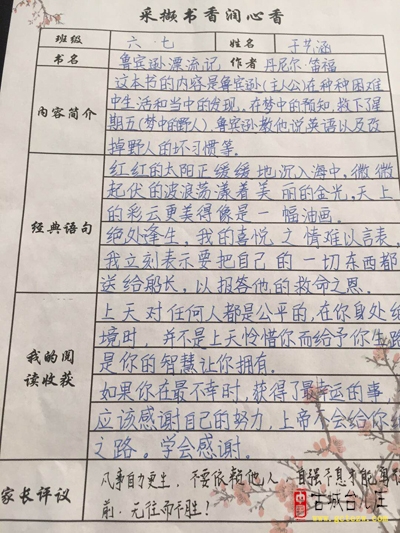 采撷书香润心香
班级 六.七 姓名 于艺涵
书名 鲁宾逊漂流记 作者 丹尼尔·笛福
内容简介
这本书的内容是鲁宾逊(主人公)在种种困难
中生活和当中的发现,在梦中的预知,救下星
期五(梦中的野人),鲁宾逊教他说英语以及改
掉野人的坏习惯等.
经典语句
红红的太阳正缓缓地沉入海中,微微
起伏的波浪荡漾着美丽的金光,天上
的彩云更美得像是一幅油画.
绝处逢生,我的喜悦之情难以言表,
我立刻表示要把自己的一切东西都
送给船长,以报答他的救命之恩.
我的阅
读收获
上天对任何人都是公平的,在你身处绝
境时,并不是上天怜惜你而给予你生路
是你的智慧让你拥有.
如果你在最不幸时,获得了最幸运的事,
应该感谢自己的努力,上帝不会给你绝
之路.学会感谢.
家长评议
凡事自力更生,不要依赖他人,自强不息才能勇往
前,无往而不胜!
古城台儿庄